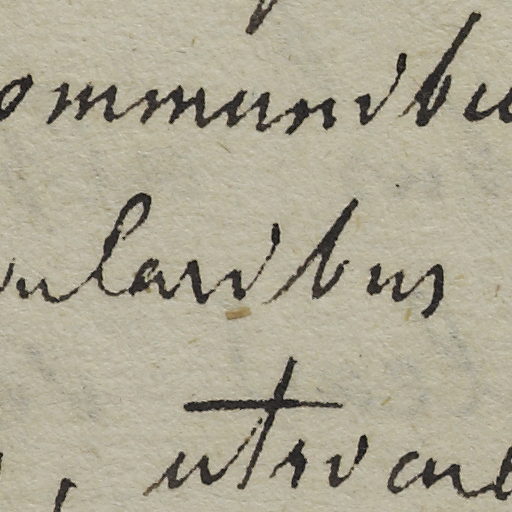 ommunibu
ularibus
, utricul